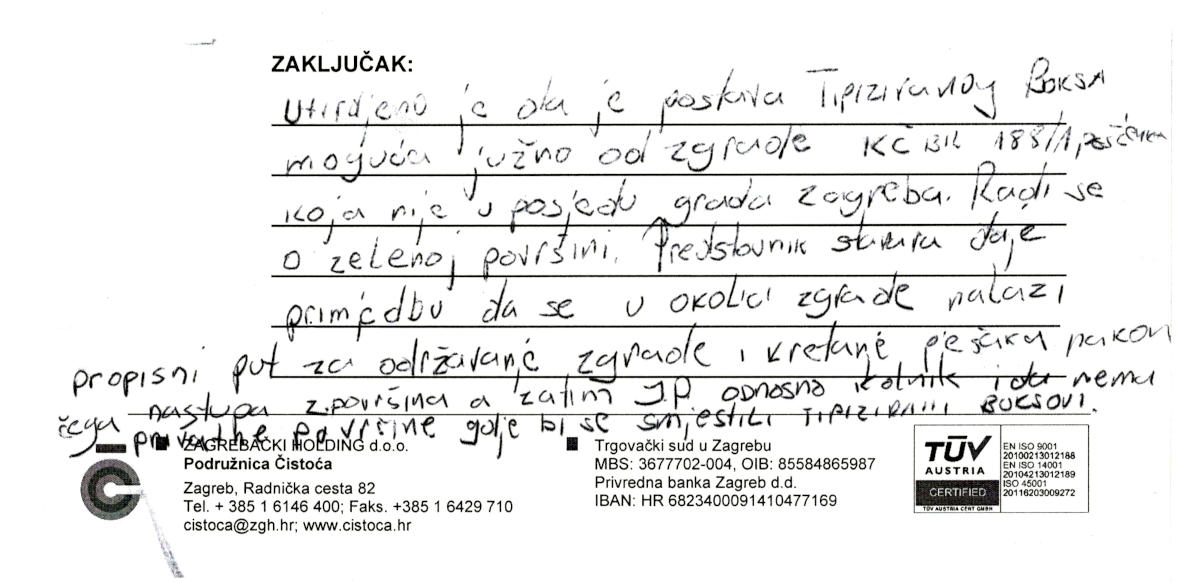 ZAKLJUČAK:
Utvrdjeno je da je postava Tipiziranog Boksa
moguća južno od zgrade KČBR 188/1,
koja nije u posjedu grada Zagreba. Radi se
o zelenoj površini. Predstavnik stanara daje
primjedbu da se u okolici zgrade nalazi
propisni put za održavanje zgrade i kretanje pješaka nakon
čega nastupa z.površina a zatim J.P odnosno kolnik i da nema
privatne površine gdje bi se smjestili TIPIZIRANI BOKSOVI.
ZAGREBAČKI HOLDING d.o.o.
Podružnica Čistoća
Zagreb, Radnička cesta 82
Tel. + 385 1 6146 400; Faks. +385 1 6429 710
cistoca@zgh.hr; www.cistoca.hr
Trgovački sud u Zagrebu
MBS: 3677702-004, OIB: 85584865987
Privredna banka Zagreb d.d.
IBAN: HR 6823400091410477169
TÜV
AUSTRIA
CERTIFIED
TÜV AUSTRIA CERT GMBH
EN ISO 9001
20100213012188
EN ISO 14001
20104213012189
ISO 45001
20116203009272